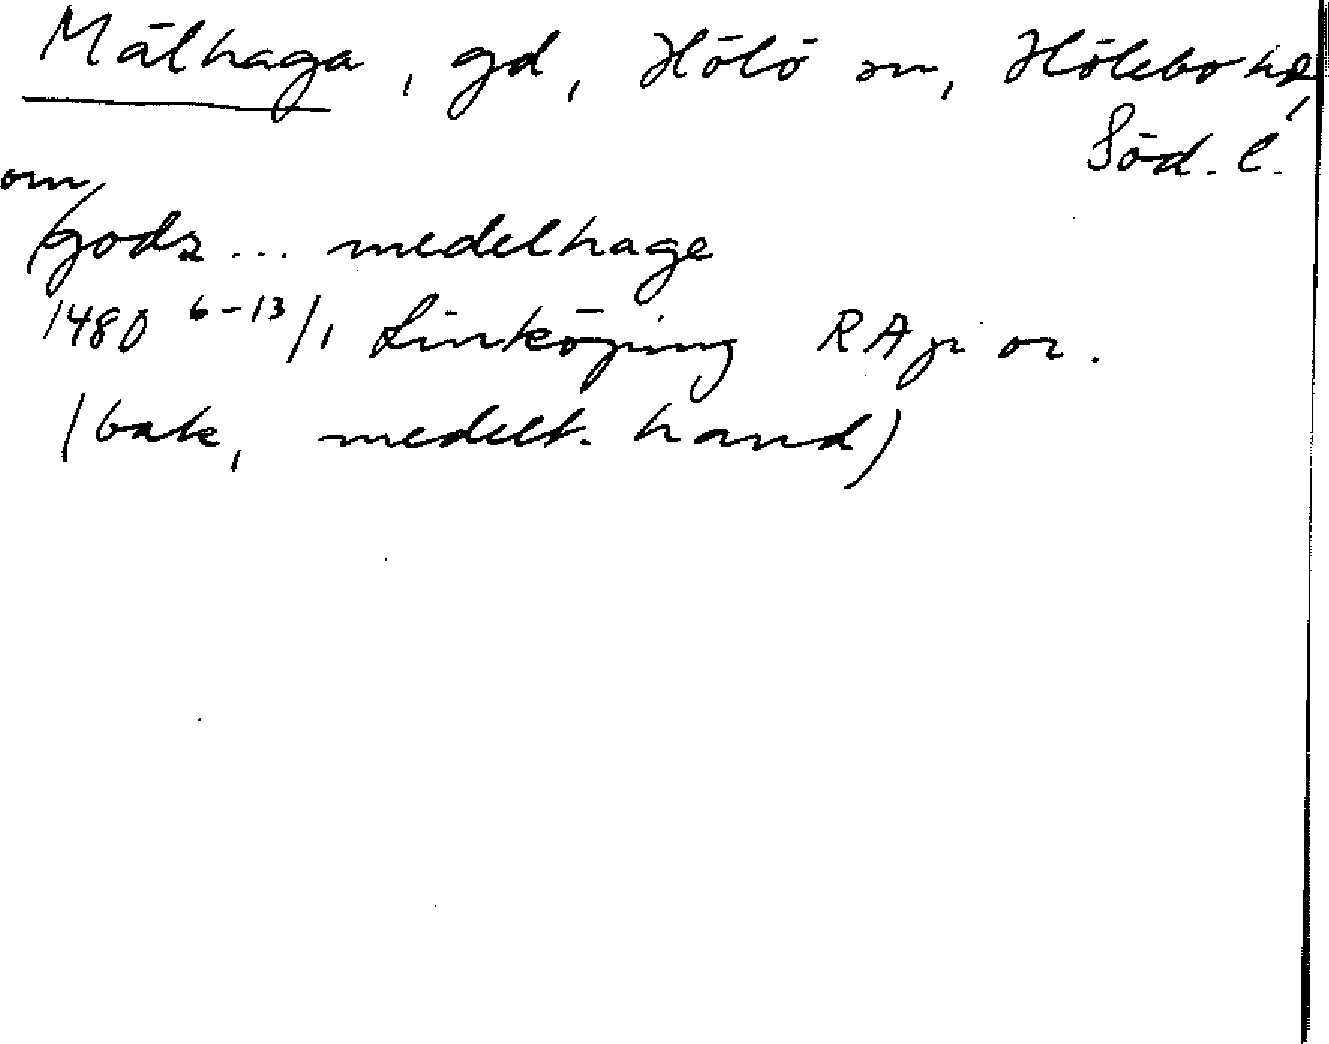 Mälhaga, gd, Hölö sn, Hölebo hd,
Söd. l.
om
godz ... medelhage
1480 6-13/1 Linköping RAp or.
(bak, medelt. hand)